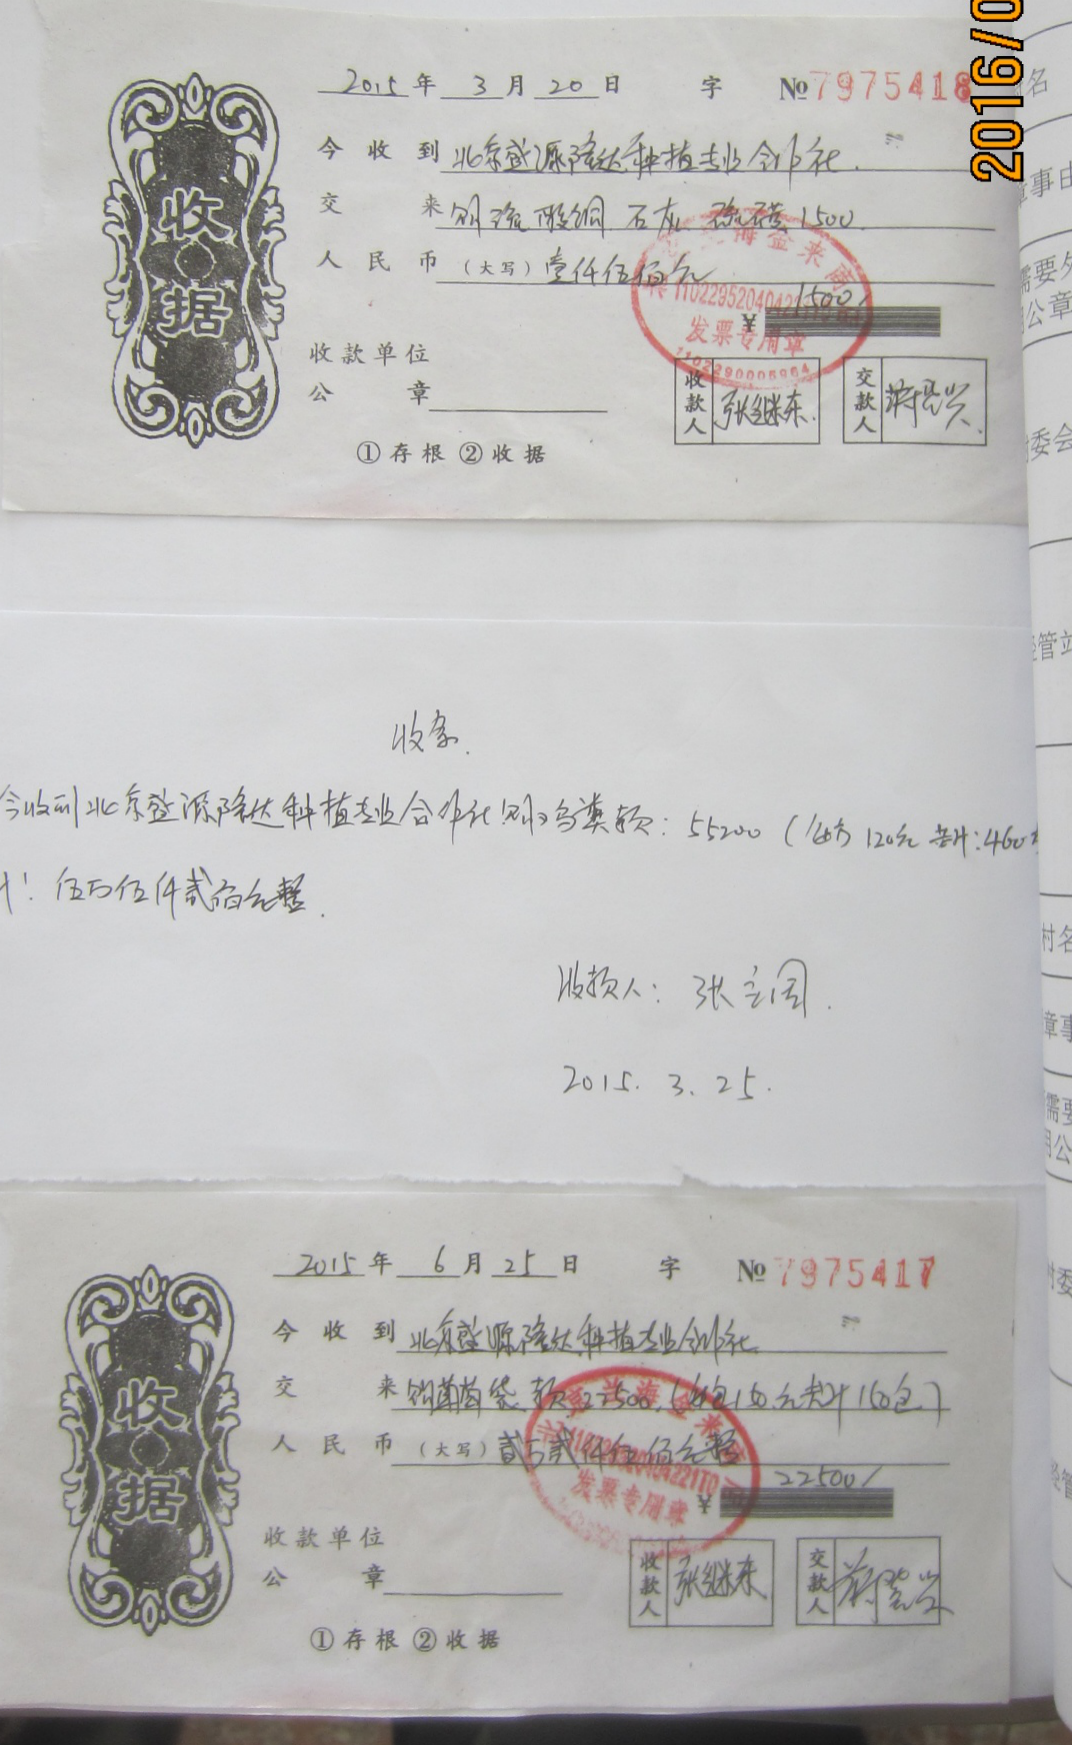 2016/0
收据
2015年 3月20日 字 №7975418
今收到 北京盛源隆达种植专业合作社.
交来 购硫酸铜 石灰 硫磺 1500
人民币（大写）壹仟伍佰元
¥ 1500/
金来商
发票专用章
1102290005964
收款单位
公章
收款人 张继东.
交款人
①存根 ②收据
收条.
今收到北京盛源隆达种植专业合作社购鸡粪款: 55200 ( 120元 共计:460
计: 伍万伍仟贰佰元整.
收款人: 张立国.
2015. 3. 25.
收据
2015年 6月25日 字 №7975417
今收到 北京盛源隆达种植专业合作社
交来 购菌袋款22500.(每包150.元共计150包)
人民币（大写）贰万贰仟伍佰元整
¥ 22500/
发票专用章
收款单位
公章
收款人 张继东
交款人
①存根 ②收据
名
章事由
需要
公章
村委会
经管站
村名
章事
需要
用公
村委
经管